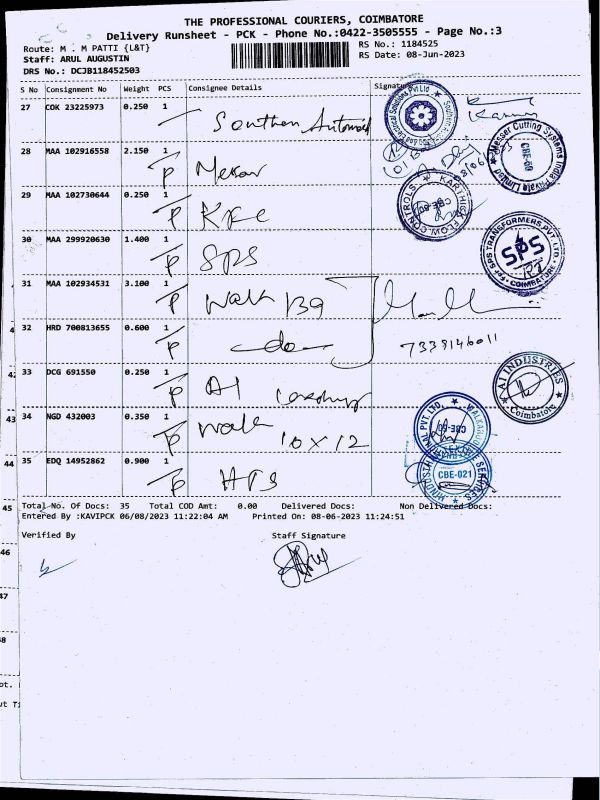 THE PROFESSIONAL COURIERS, COIMBATORE
Delivery Runsheet - PCK - Phone No.:0422-3505555 - Page No.:3
Route: M . M PATTI {L&T}
RS No.: 1184525
Staff: ARUL AUGUSTIN
RS Date: 08-Jun-2023
DRS No.: DCJB118452503
S No Consignment No Weight PCS Consignee Details Signature
27 COK 23225973 0.250 1
Southern
28 MAA 102916558 2.150 1
29 MAA 102730644 0.250 1
KFC
30 MAA 299920630 1.400 1
SPS
31 MAA 102934531 3.100 1
Walk 139
32 HRD 700813655 0.600 1
do
7339146011
33 DCG 691550 0.250 1
AI
34 NGD 432003 0.350 1
Walk 10x12
35 EDQ 14952862 0.900 1
HTS
Messer Cutting Systems India Private Limited
CBE-60
KARTHICK FLOW CONTROLS
SPS TRANSFORMERS PVT. LTD.
SPS
COIMBATORE
INDUSTRIES
Coimbatore
CBE-60
CBE-021
42
43
44
45
46
47
Total No. Of Docs: 35 Total COD Amt: 0.00 Delivered Docs: Non Delivered Docs:
Entered By :KAVIPCK 06/08/2023 11:22:04 AM Printed On: 08-06-2023 11:24:51
Verified By Staff Signature